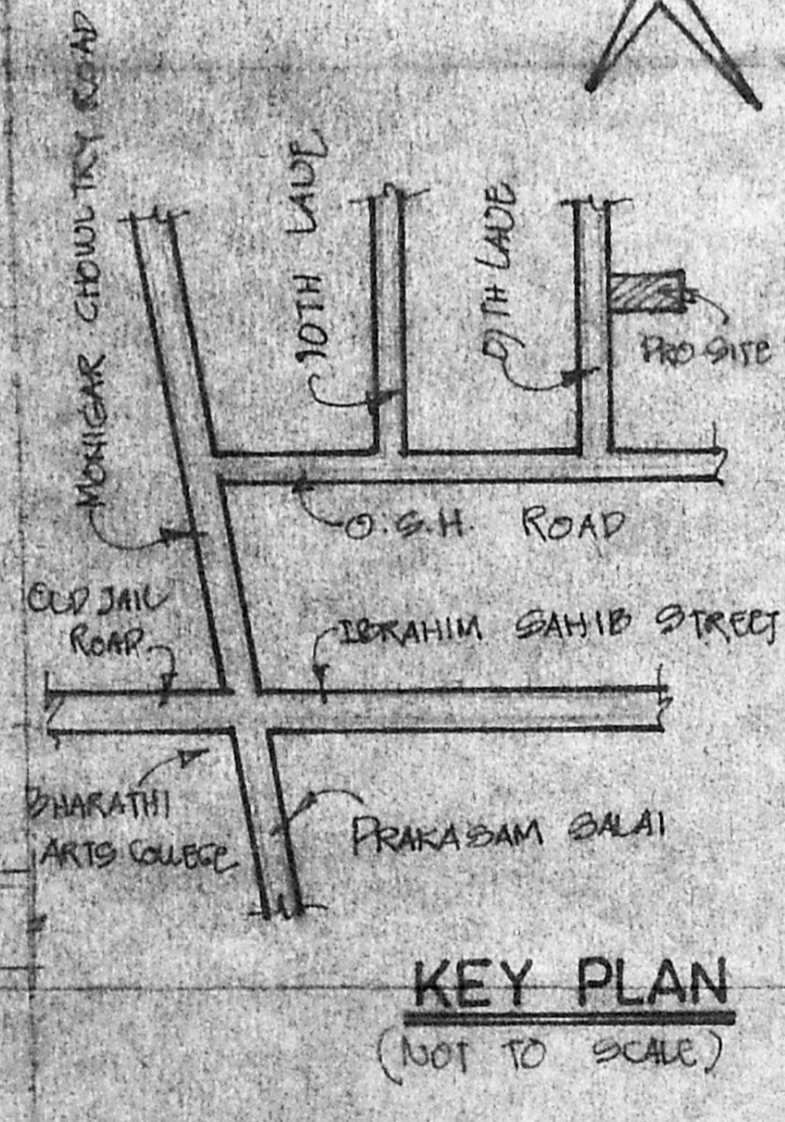 MONIGAR CHOWLTRY ROAD
10TH LANE
9TH LANE
PRO-SITE
O.S.H. ROAD
OLD JAIL
ROAD
IBRAHIM SAHIB STREET
BHARATHI
ARTS COLLEGE
PRAKASAM SALAI
KEY PLAN
(NOT TO SCALE)